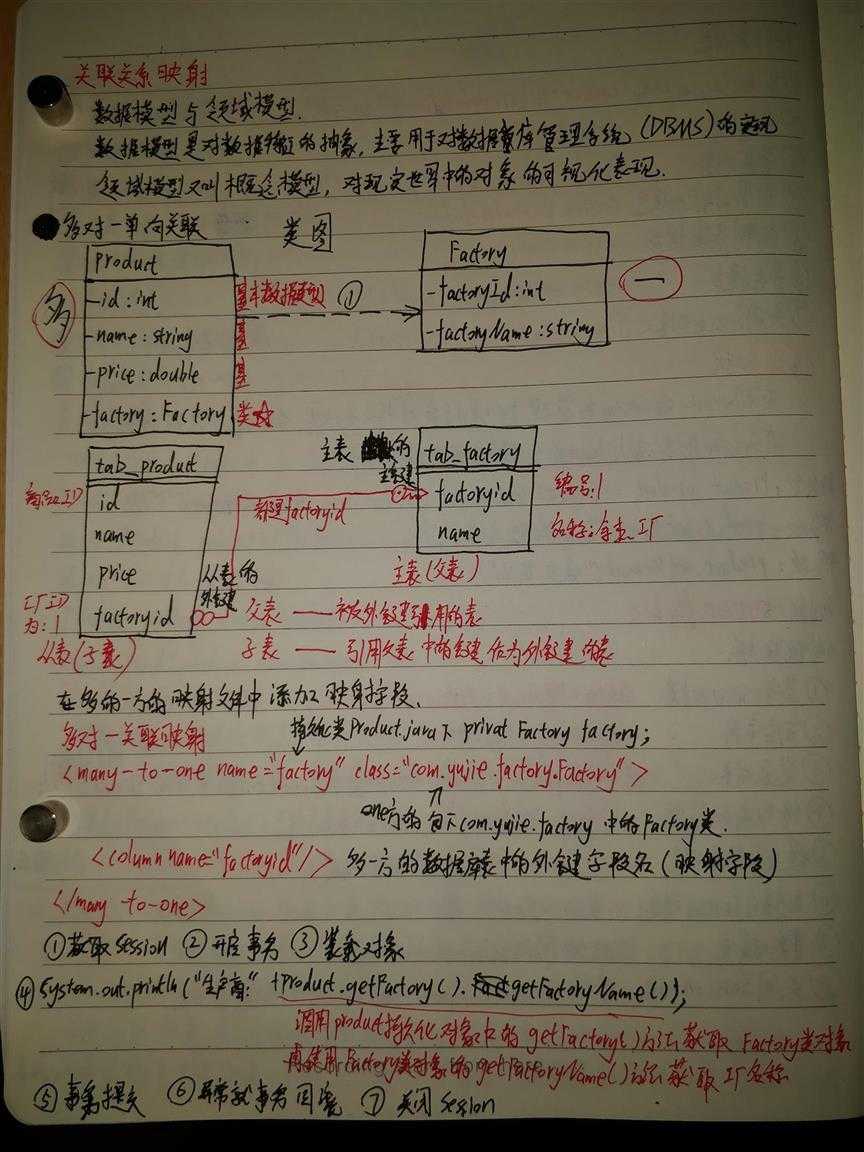 关联关系映射
数据模型与领域模型.
数据模型是对数据特征的抽象，主要用于对数据库管理系统(DBMS)的实现
领域模型又叫概念模型，对现实世界中的对象的可视化表现.
多对一单向关联 类图
Product
多
-id:int 基本数据类型 ①
-name:string 基
-price:double 基
-factory:Factory 类
Factory
-factoryId:int
-factoryName:string
一
tab_product
id
name
price
factoryid
工厂ID
为:1
从表(子表)
从表的
外键
都是factoryid
主表的
主键
tab_factory
factoryid 编号:1
name
主表(父表)
父表——被外键引用的表
子表——引用父表中的键作为外键的表
在多的一方的映射文件中添加映射字段.
多对一关联映射 持久化类Product.java下 privat Factory factory;
<many-to-one name="factory" class="com.yujie.factory.Factory">
one方的包下com.yujie.factory 中的Factory类.
<column name="factoryid"/> 多一方的数据库表中的外键字段名(映射字段)
</many-to-one>
①获取session ②开启事务 ③装载对象
④System.out.println("生产商:" +product.getFactory().getFactoryName());
调用product持久化对象中的getFactory()方法获取Factory类对象
再使用Factory类对象的getFactoryName()方法获取工厂名称
⑤事务提交 ⑥异常就事务回滚 ⑦关闭session